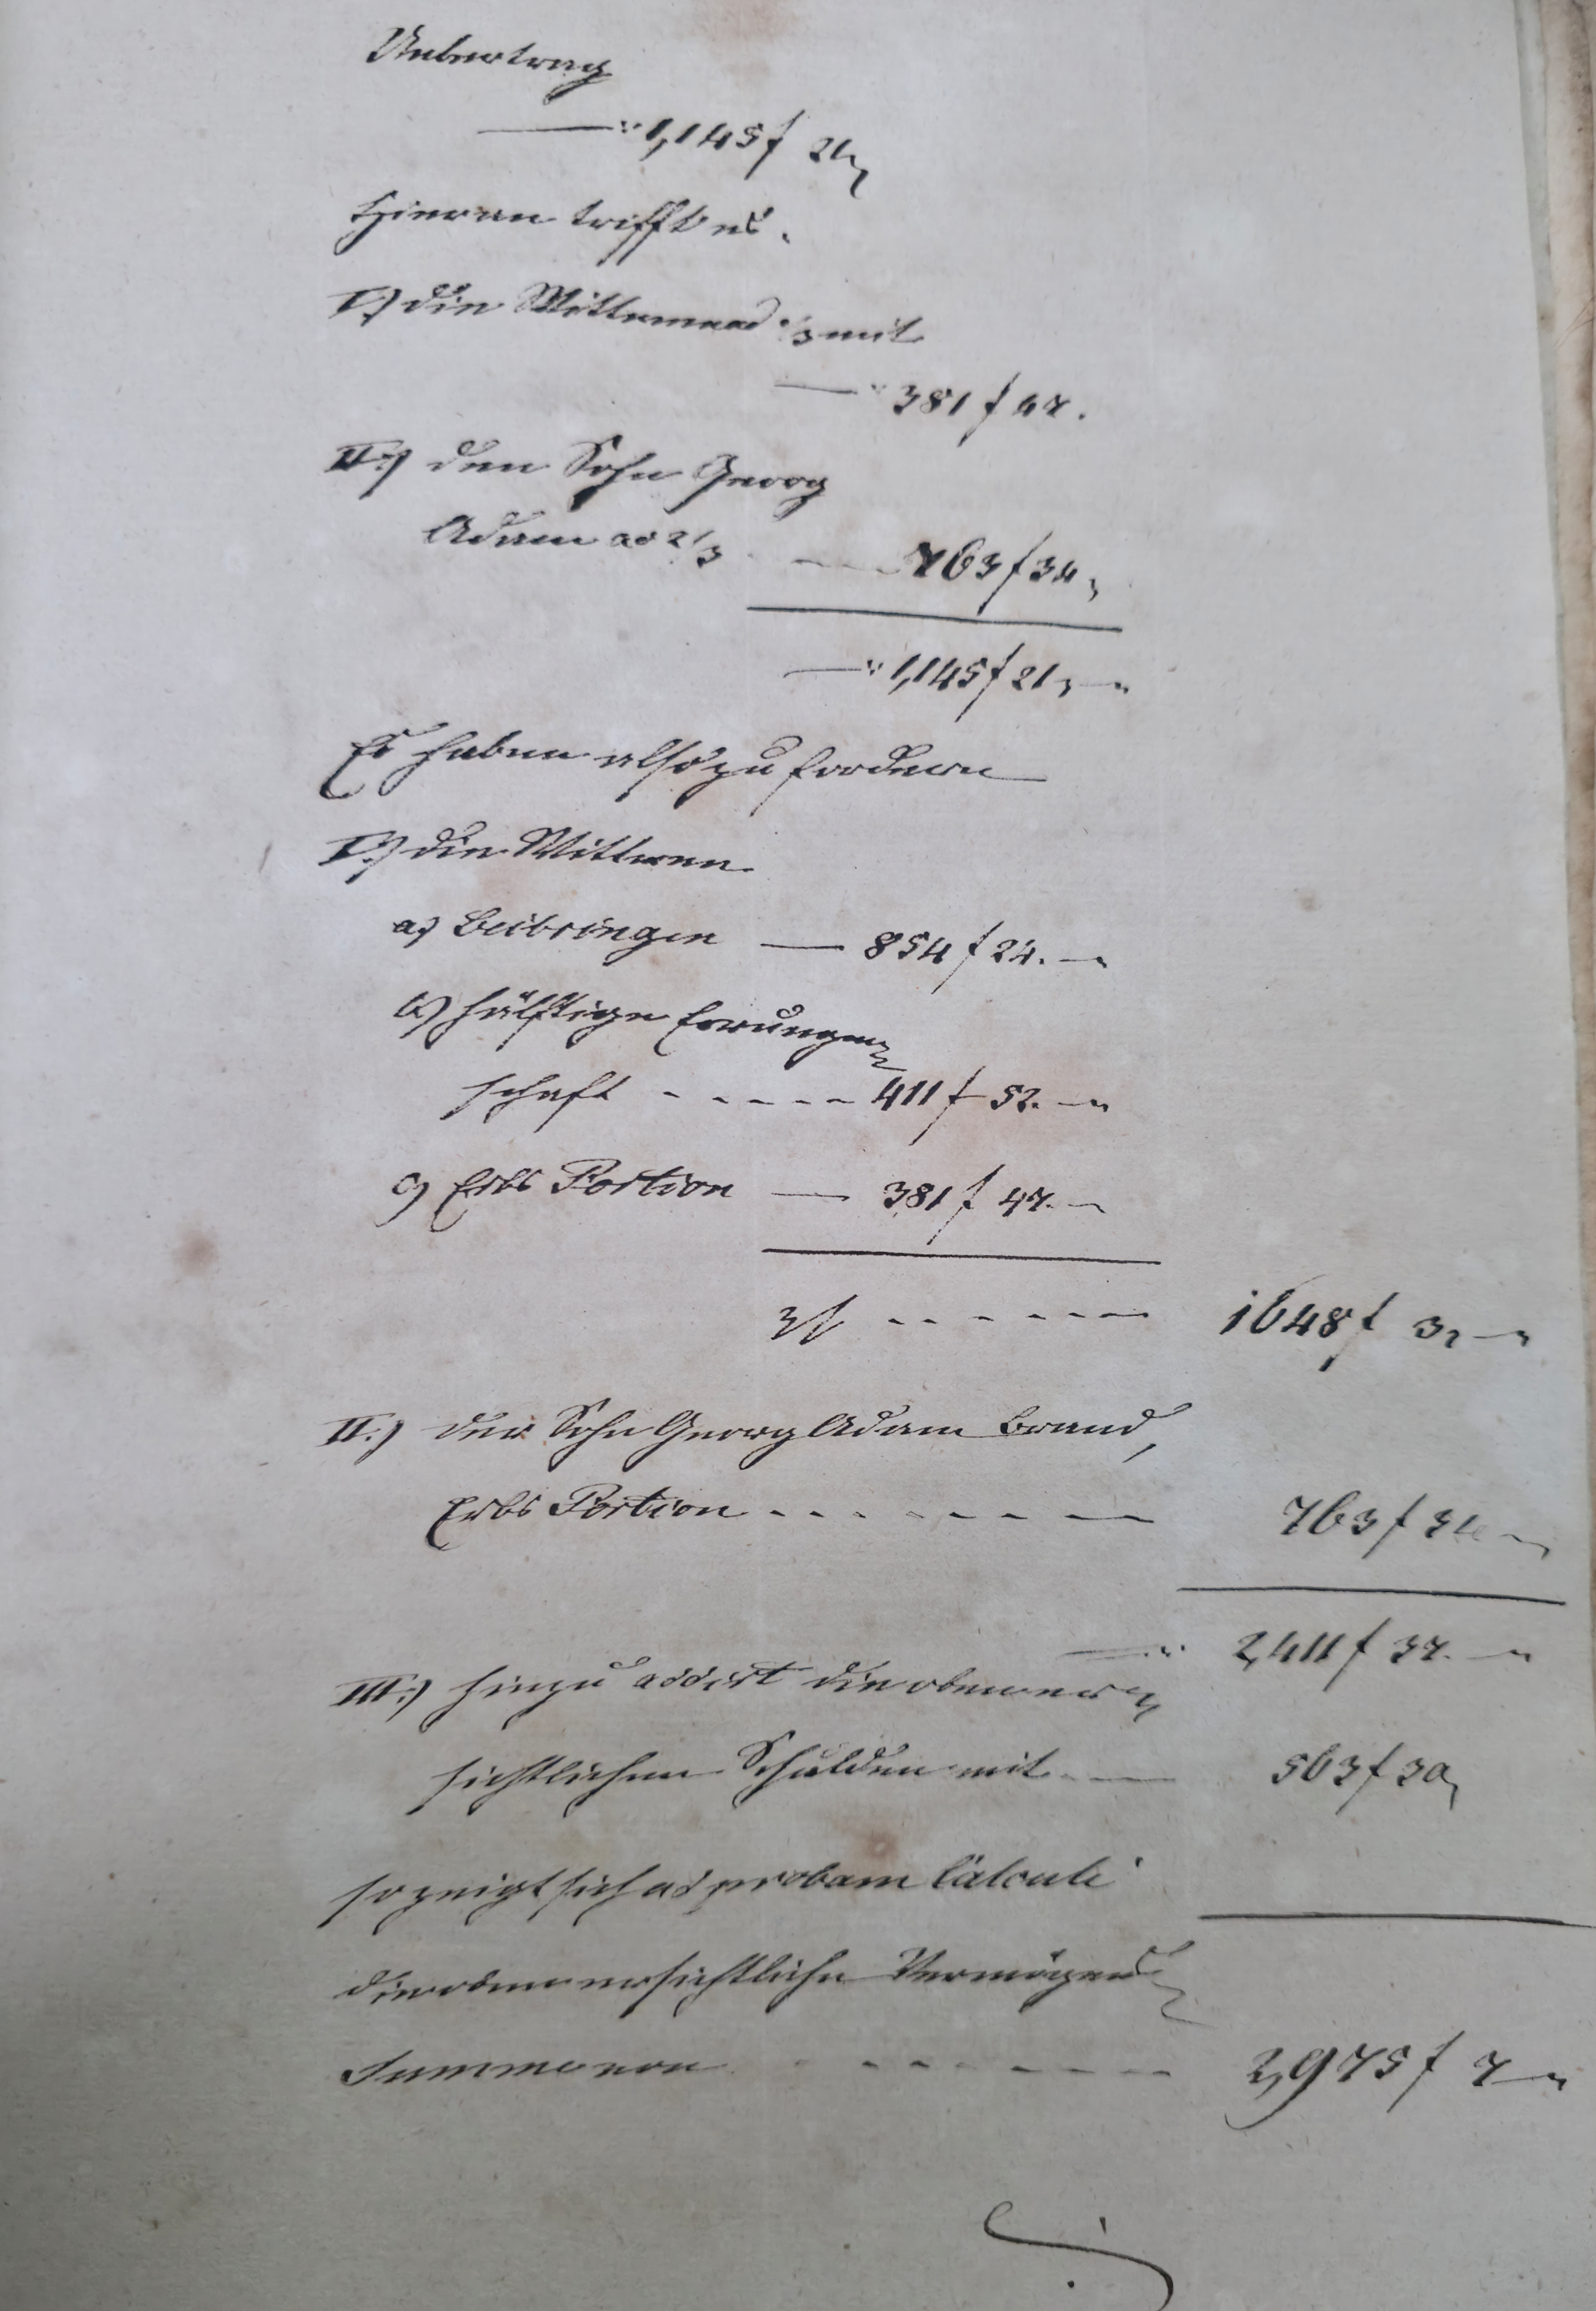 Uebertrag
—" 1,145 f 21,
Hieran trifft es.
I.) die Wittwe ad 1/3 mit
—" 381 f 47.
II.) den Sohn Georg
Adam ad 2/3 - — 763 f 34,
—" 1,145 f 21, —"
Es haben also zu fordern
I.) die Wittwe
a) Beibringen — 854 f 24. —
b) hälftige Errungen=
schaft - - - - - 411 f 52. —"
c) Erbs Portion — 381 f 47. —
3/ - - - - - - 1648 f 3, —"
II.) der Sohn Georg Adam Brand,
Erbs Portion - - - - - - - — 763 f 34 —
—" 2,411 f 37. —"
III.) hinzu addirt die oben er=
sichtlichen Schulden mit — 563 f 30,
so zeigt sich ad probam Calculi
die oben ersichtliche Vermögens=
Summe von - - - - - - - 2,975 f 7 —"